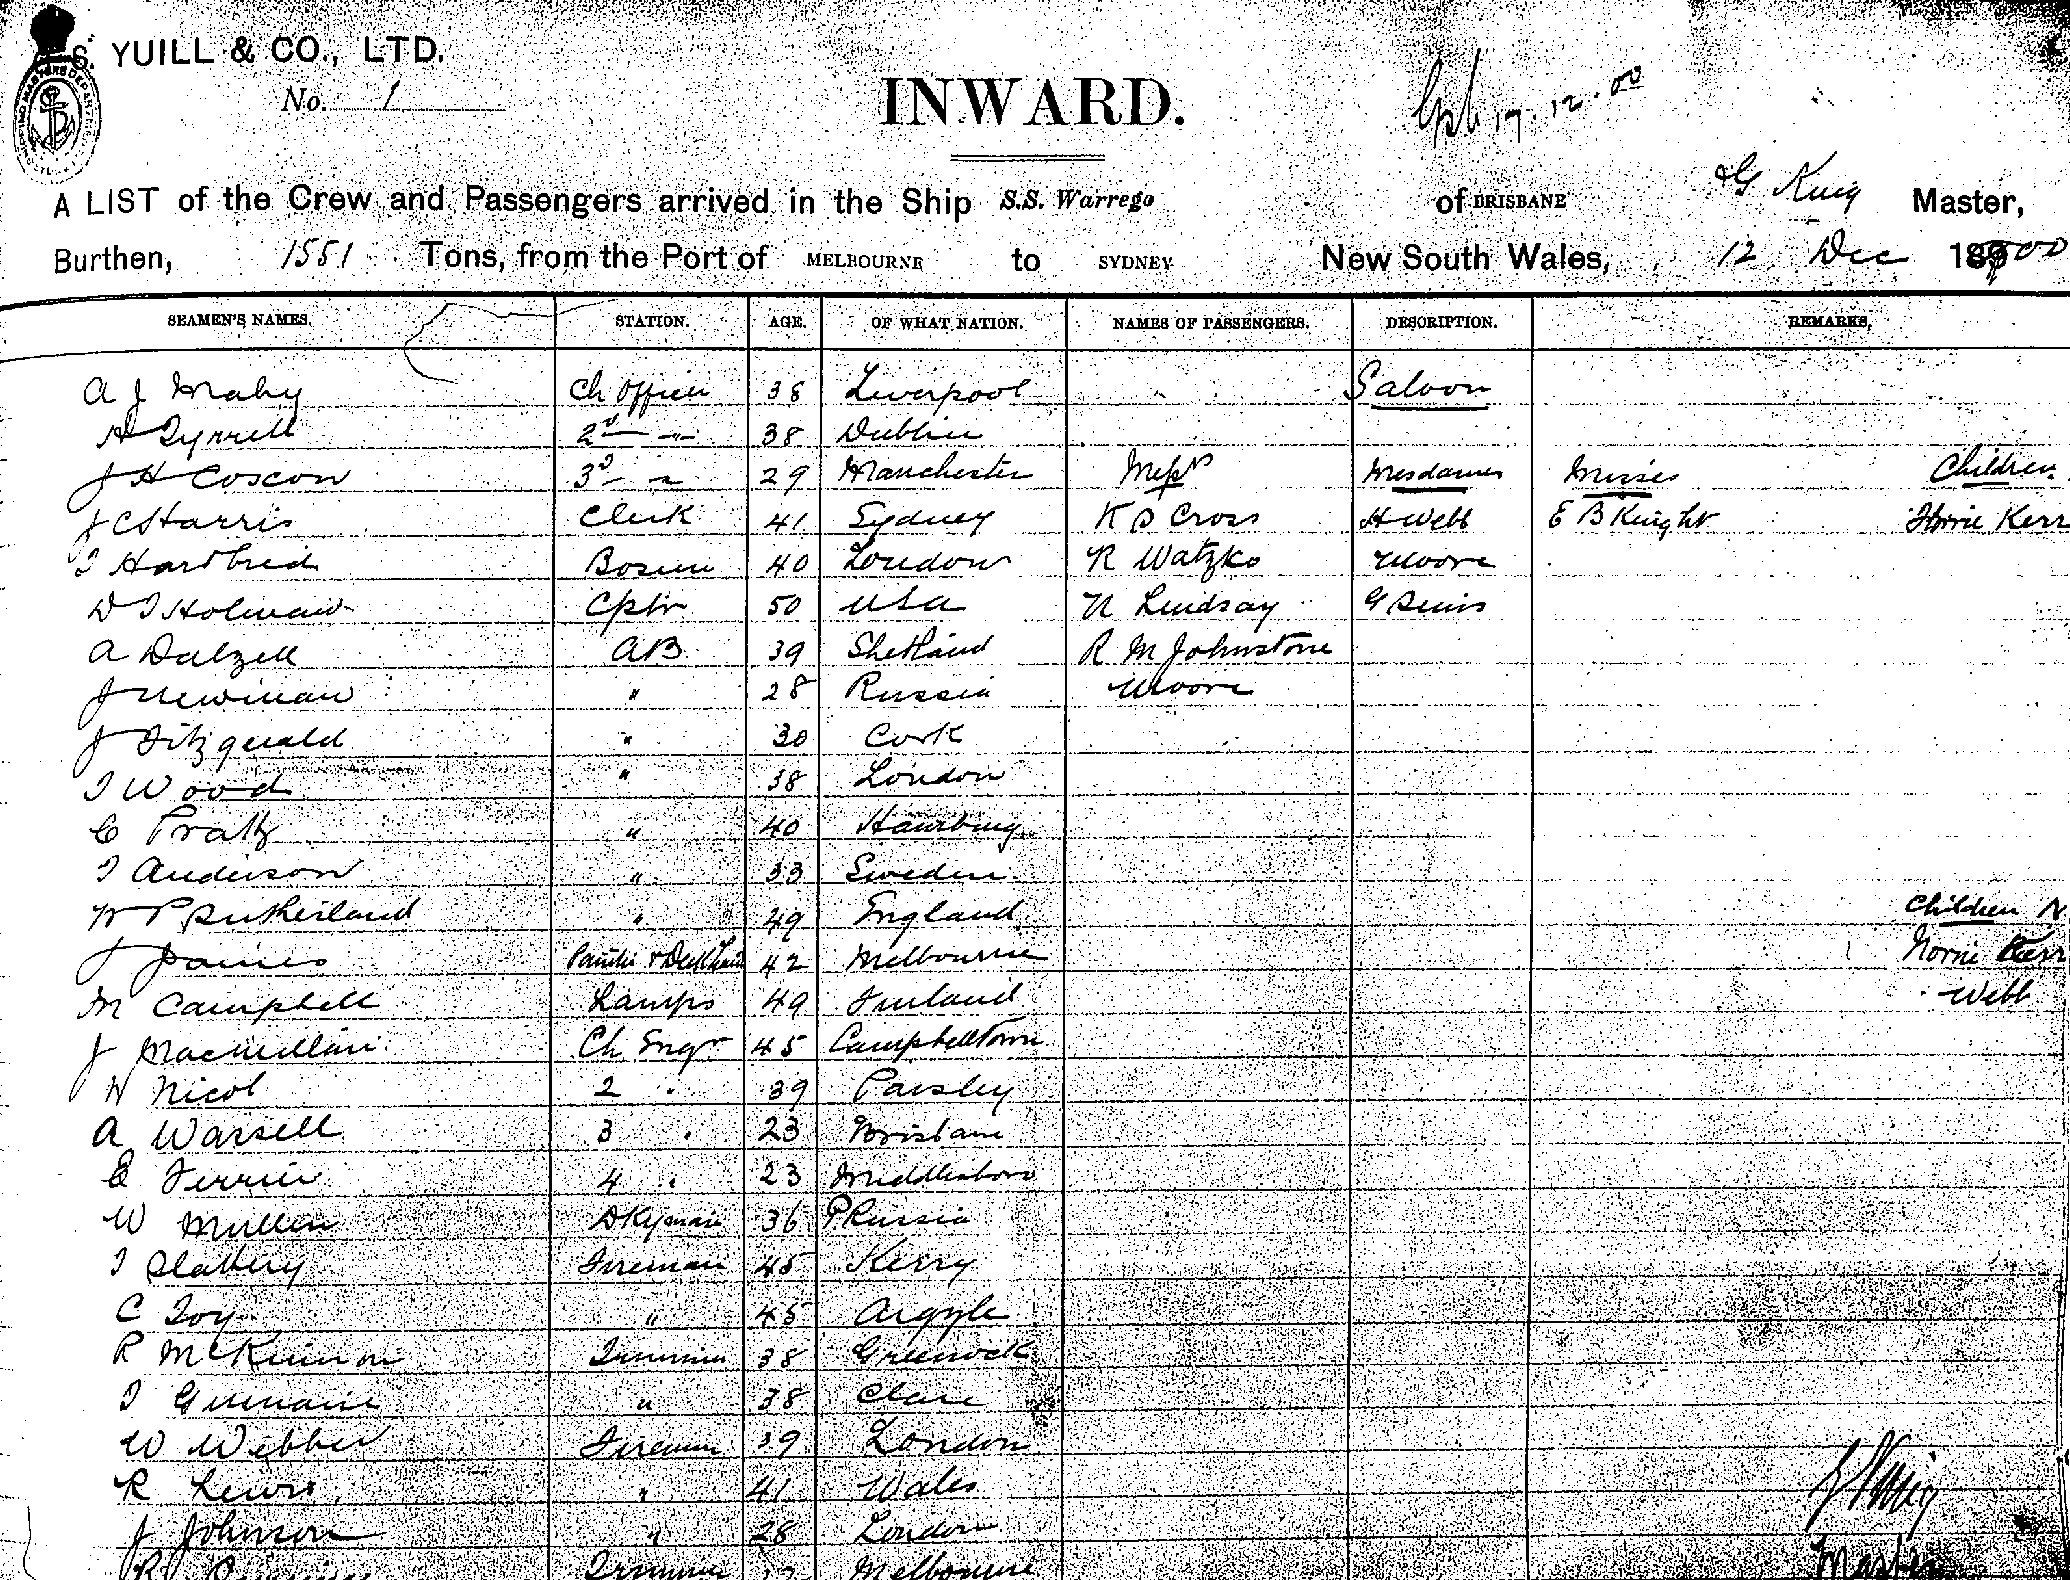 S. YUILL & CO., LTD.
No. 1
INWARD.
17.12.00
A LIST of the Crew and Passengers arrived in the Ship S.S. Warrego of BRISBANE G King Master,
Burthen, 1551 Tons, from the Port of MELBOURNE to SYDNEY New South Wales, 12 Dec 1900
SEAMEN'S NAMES. STATION. AGE. OF WHAT NATION. NAMES OF PASSENGERS. DESCRIPTION. REMARKS.
A J Maby Ch Officer 38 Liverpool Saloon
H Tyrrell 2d " 38 Dublin
J H Coscon 3d " 29 Manchester Messrs Mesdames Misses Children
J C Harris Clerk 41 Sydney K D Cross H Webb E B Knight Kerr
T Hardbred Bosun 40 London R Watzko Moore
D T Holman Cptr 50 USA N Lindsay G Denis
A Dalzell AB 39 Shetland R M Johnstone
J Newman " 28 Russia Moore
J Fitzgerald " 30 Cork
T Wood " 38 London
C Pratz " 40 Hamburg
T Anderson " 33 Sweden
W P Sutherland " 49 England Children N
J James Painter & Deckhand 42 Melbourne Norrie Kerr
M Campbell Lamps 49 Finland Webb
J Macmillan Ch Engr 45 Campbelltown
H Nicol 2 " 39 Paisley
A Warsell 3 " 23 Brisbane
E Ferrier 4 " 23 Middlesboro
W Mullen Dkyman 36 PRussia
T Slattery Fireman 45 Kerry
C Toy " 45 Argyle
R McKinnon Trimmer 38 Greenock
T Germaine " 38 Clare
W Webber Fireman 39 London
R Lewis " 41 Wales
J Johnson " 28 London
R Trimmer Melbourne Master